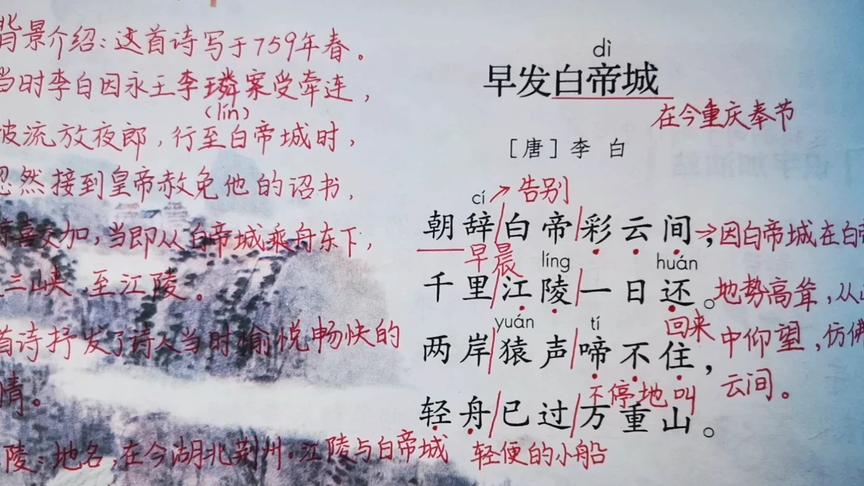 背景介绍：这首诗写于759年春。
当时李白因永王李璘案受牵连，
(lín)
被流放夜郎，行至白帝城时，
忽然接到皇帝赦免他的诏书，
惊喜交加，当即从白帝城乘舟东下，
三峡，至江陵。
首诗抒发了诗人当时愉悦畅快的
情。
陵：地名，在今湖北荆州。江陵与白帝城
dì
早发白帝城
在今重庆奉节
［唐］李白
cí 告别
朝辞/白帝/彩云间，
早晨
líng huán
千里/江陵/一日还。
回来
yuán tí
两岸/猿声/啼不住，
不停地叫
轻舟/已过/万重山。
轻便的小船
→因白帝城在白帝
地势高耸，从
中仰望，仿佛
云间。